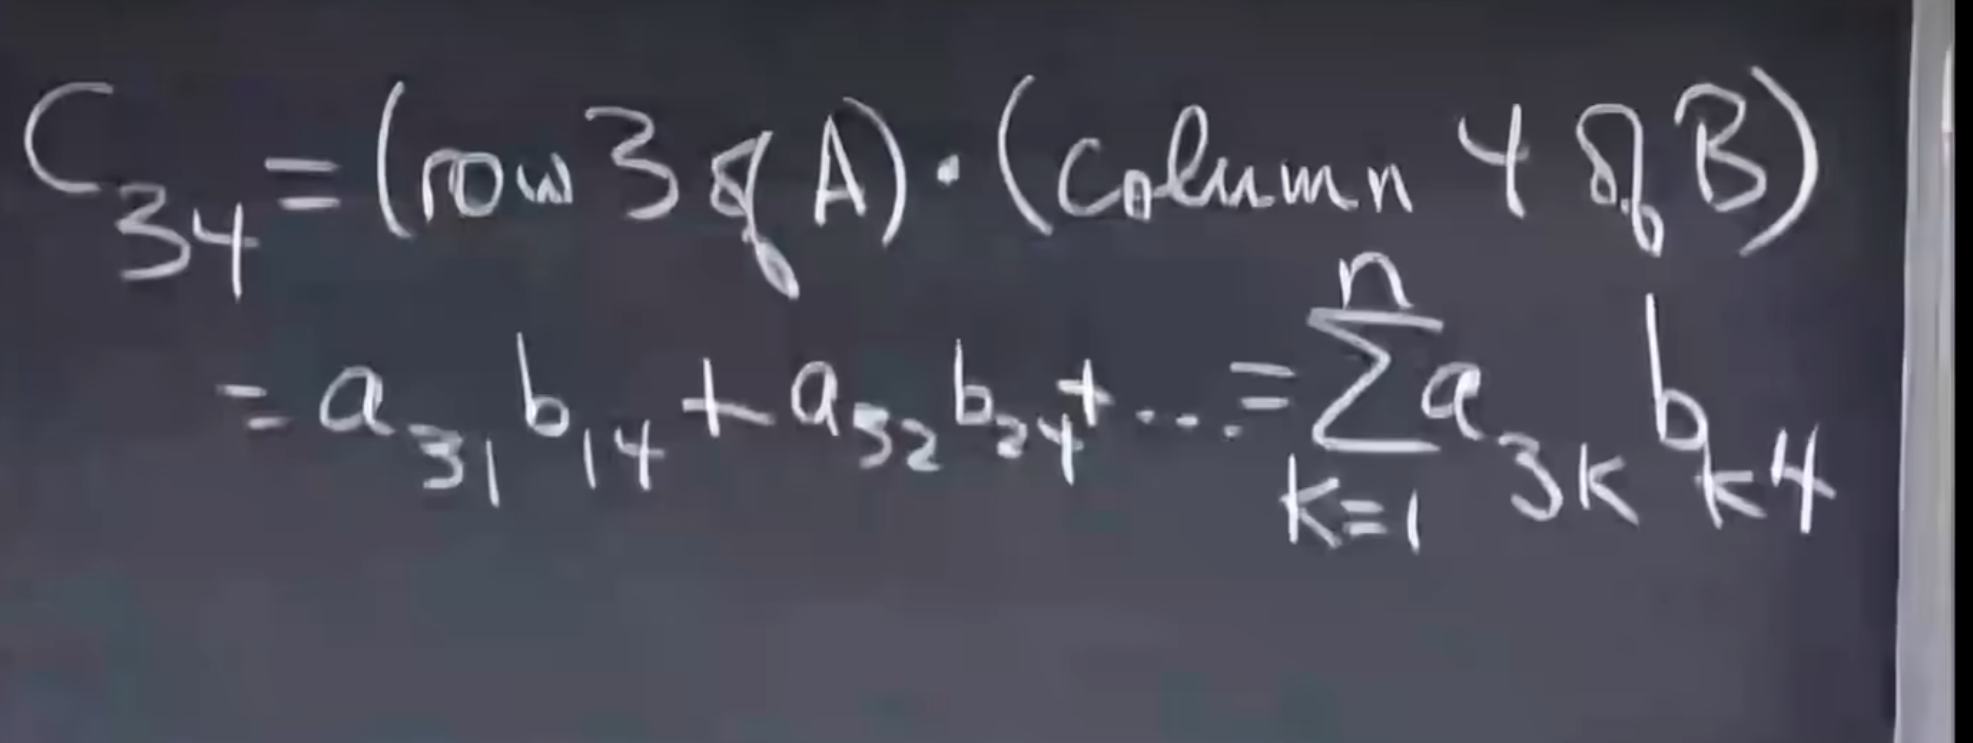 C₃₄ = (row 3 of A) · (column 4 of B)
= a₃₁ b₁₄ + a₃₂ b₂₄ + ... = ∑ₖ₌₁ⁿ a₃ₖ bₖ₄